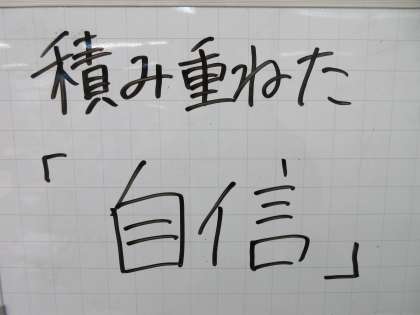 積み重ねた
「自信」